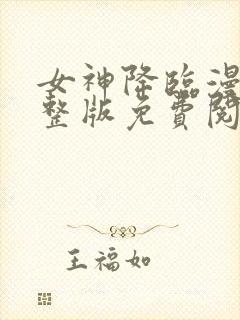 女神降臨漫
整版免費閱
王福如